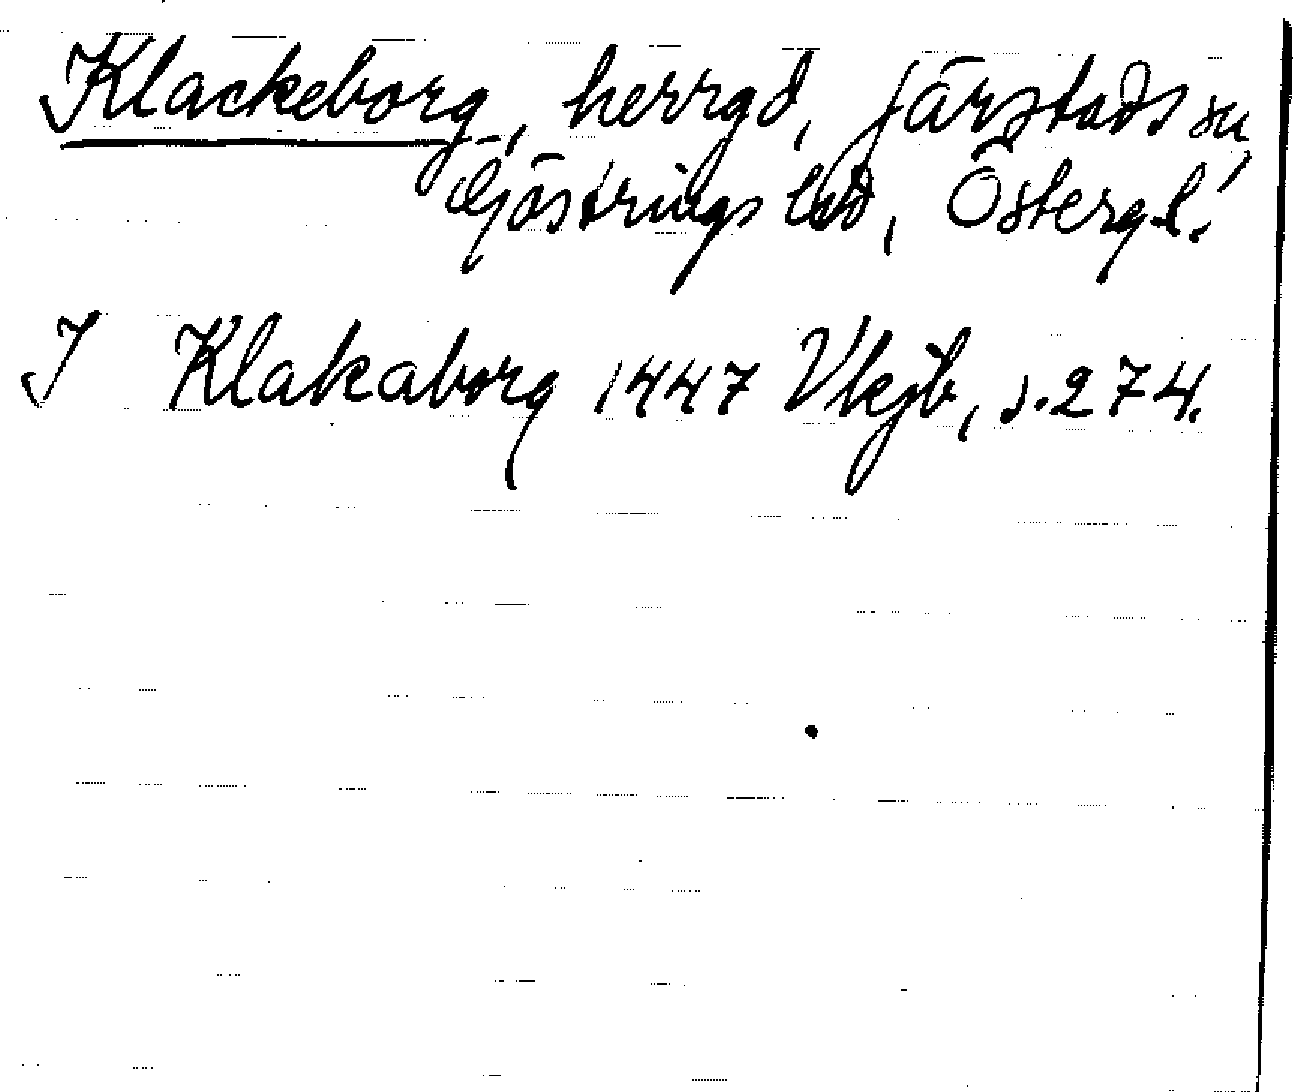 Klackeborg, herrgd, Järstads sn,
Göstrings hd, Östergl.
J Klakaborg 1447 Vkjb, s. 274.